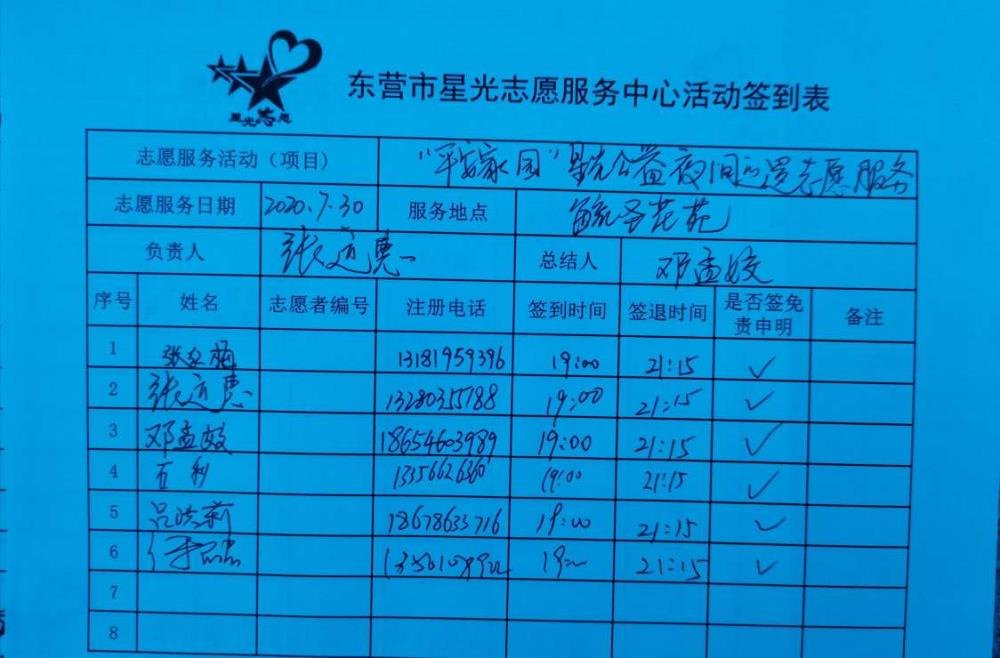 星光志愿
东营市星光志愿服务中心活动签到表
志愿服务活动（项目） "平安家园"星光公益夜间巡逻志愿服务
志愿服务日期 2020.7.30 服务地点 花苑
负责人 张道惠 总结人 邓孟姣
序号 姓名 志愿者编号 注册电话 签到时间 签退时间 是否签免责申明 备注
1 13181959396 19:00 21:15 ✓
2 张道惠 13280355188 19:00 21:15 ✓
3 邓孟姣 18654603989 19:00 21:15 ✓
4 1335662636 19:00 21:15 ✓
5 吕洪莉 18678633716 19:00 21:15 ✓
6 21:15 ✓
7
8